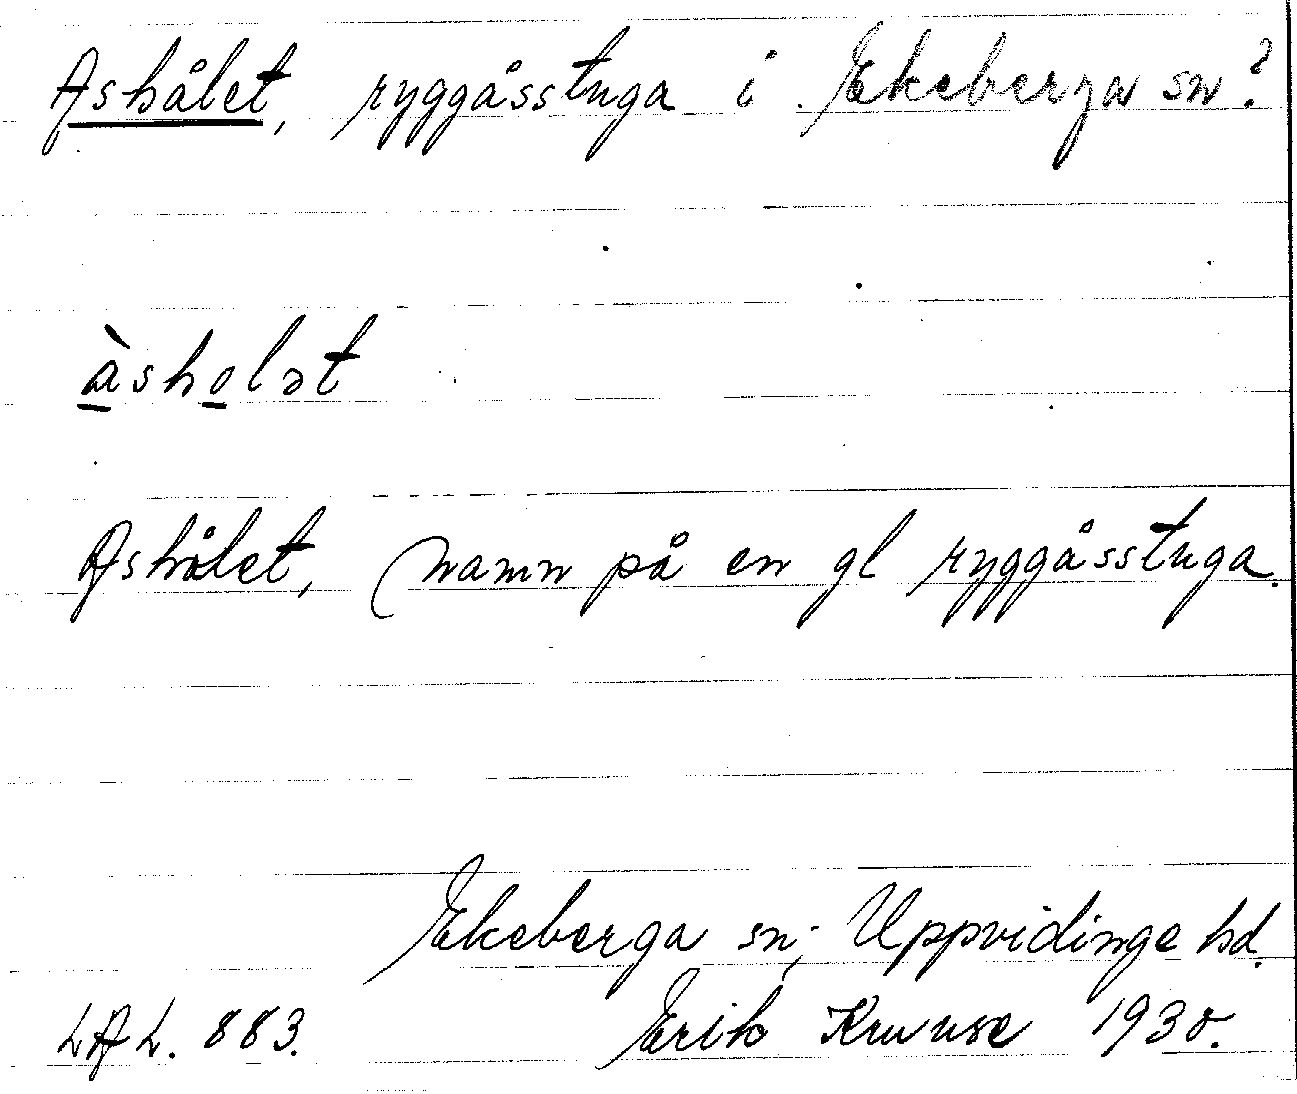 Ashålet, ryggåsstuga i Ekeberga sn?
àsholət
Ashålet, namn på en gl ryggåsstuga.
Ekeberga sn; Uppvidinge hd.
LAL. 883. Erik Kruuse 1930.